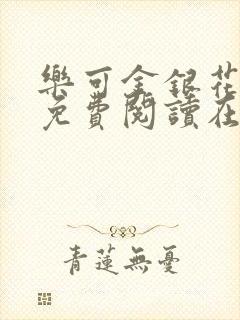 樂可金銀花
免費閱讀在
青蓮無憂